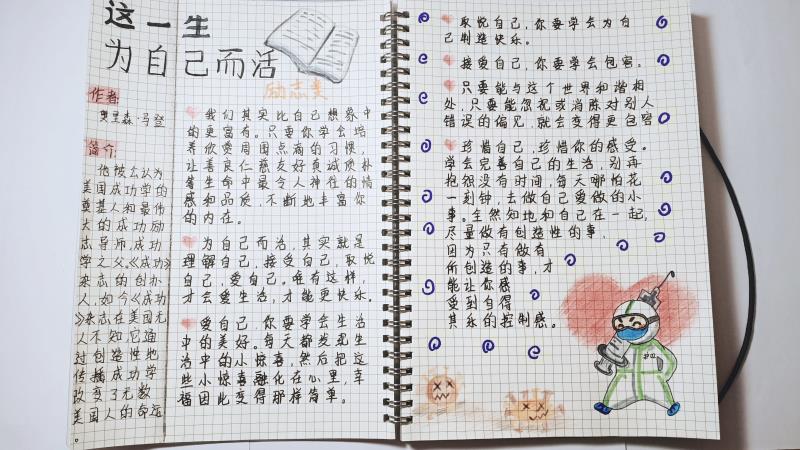 这一生
为自己而活
励志类
作者
奥里森·马登
简介:
他被公认为
美国成功学的
奠基人和最伟
大的成功励
志导师,成功
学之父。《成功》
杂志的创办
人,如今《成功
》杂志在美国无
人不知,它通
过创造性地
传播成功学
改变了无数
美国人的命运
。
我们其实比自己想象中
的更富有。只要你学会培
养欣爱周围点滴的习惯,
让善良仁慈友好真诚质朴
着生命中最令人神往的情
感和品质,不断地丰富你
的内在。
为自己而活,其实就是
理解自己,接受自己,取悦
自己,爱自己。唯有这样,
才会爱生活,才能更快乐。
爱自己,你要学会生活
中的美好。每天都发现生
活中的小惊喜,然后把这
些小惊喜融化在心里,幸
福因此变得那样简单。
取悦自己,你要学会为自
己制造快乐。
接受自己,你要学会包容。
只要能与这个世界和谐相
处,只要能忽视或消除对别人
错误的偏见,就会变得更包容
珍惜自己,珍惜你的感受。
学会完善自己的生活,别再
抱怨没有时间,每天哪怕花
一刻钟,去做自己爱做的小
事。全然知地和自己在一起,
尽量做有创造性的事,
因为只有做有
所创造的事,才
能让你感
受到自得
其乐的控制感。
中国